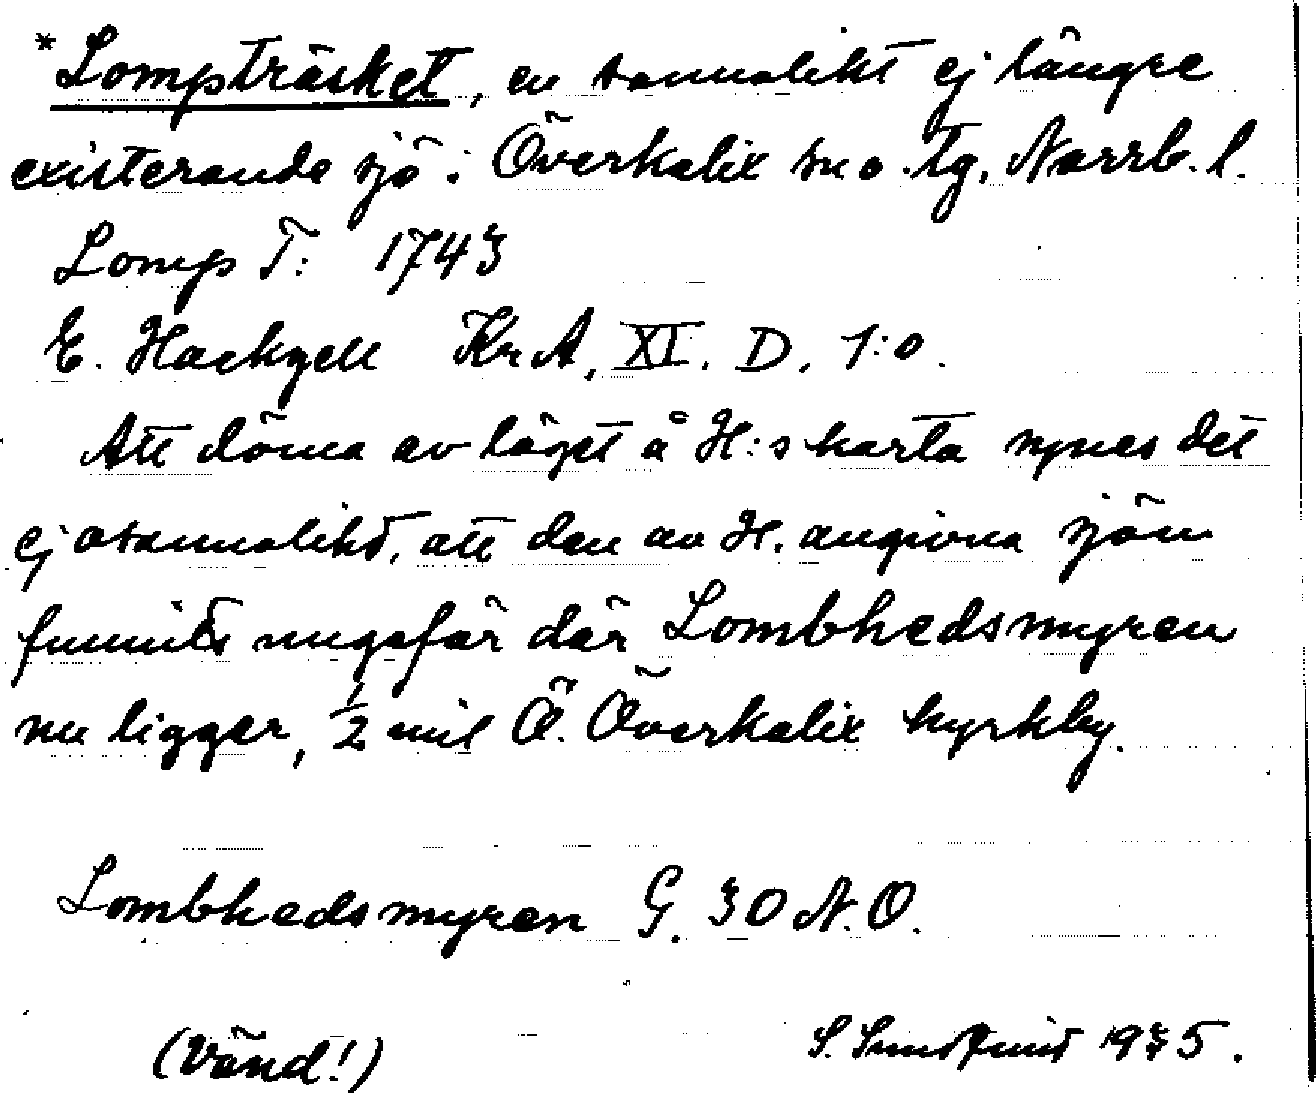 *Lompträsket, en sannolikt ej längre
existerande sjö i Överkalix sn o. tg, Norrb. l.
Lomp T: 1743
E. Hackzell KrA, XI. D. 1:o.
Att döma av läget å H:s karta synes det
ej osannolikt, att den av H. angivna sjön
funnits ungefär där Lombhedsmyren
nu ligger, ½ mil Ö. Överkalix kyrkby.
Lombhedsmyren G. 30 N.O.
(Vänd!)
S. 1935.